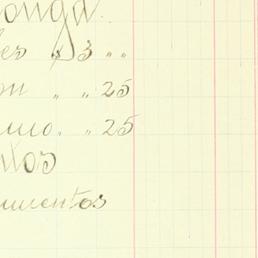 onga.
les $3 ..
on " " 25
mo. " 25
ntos
umentos